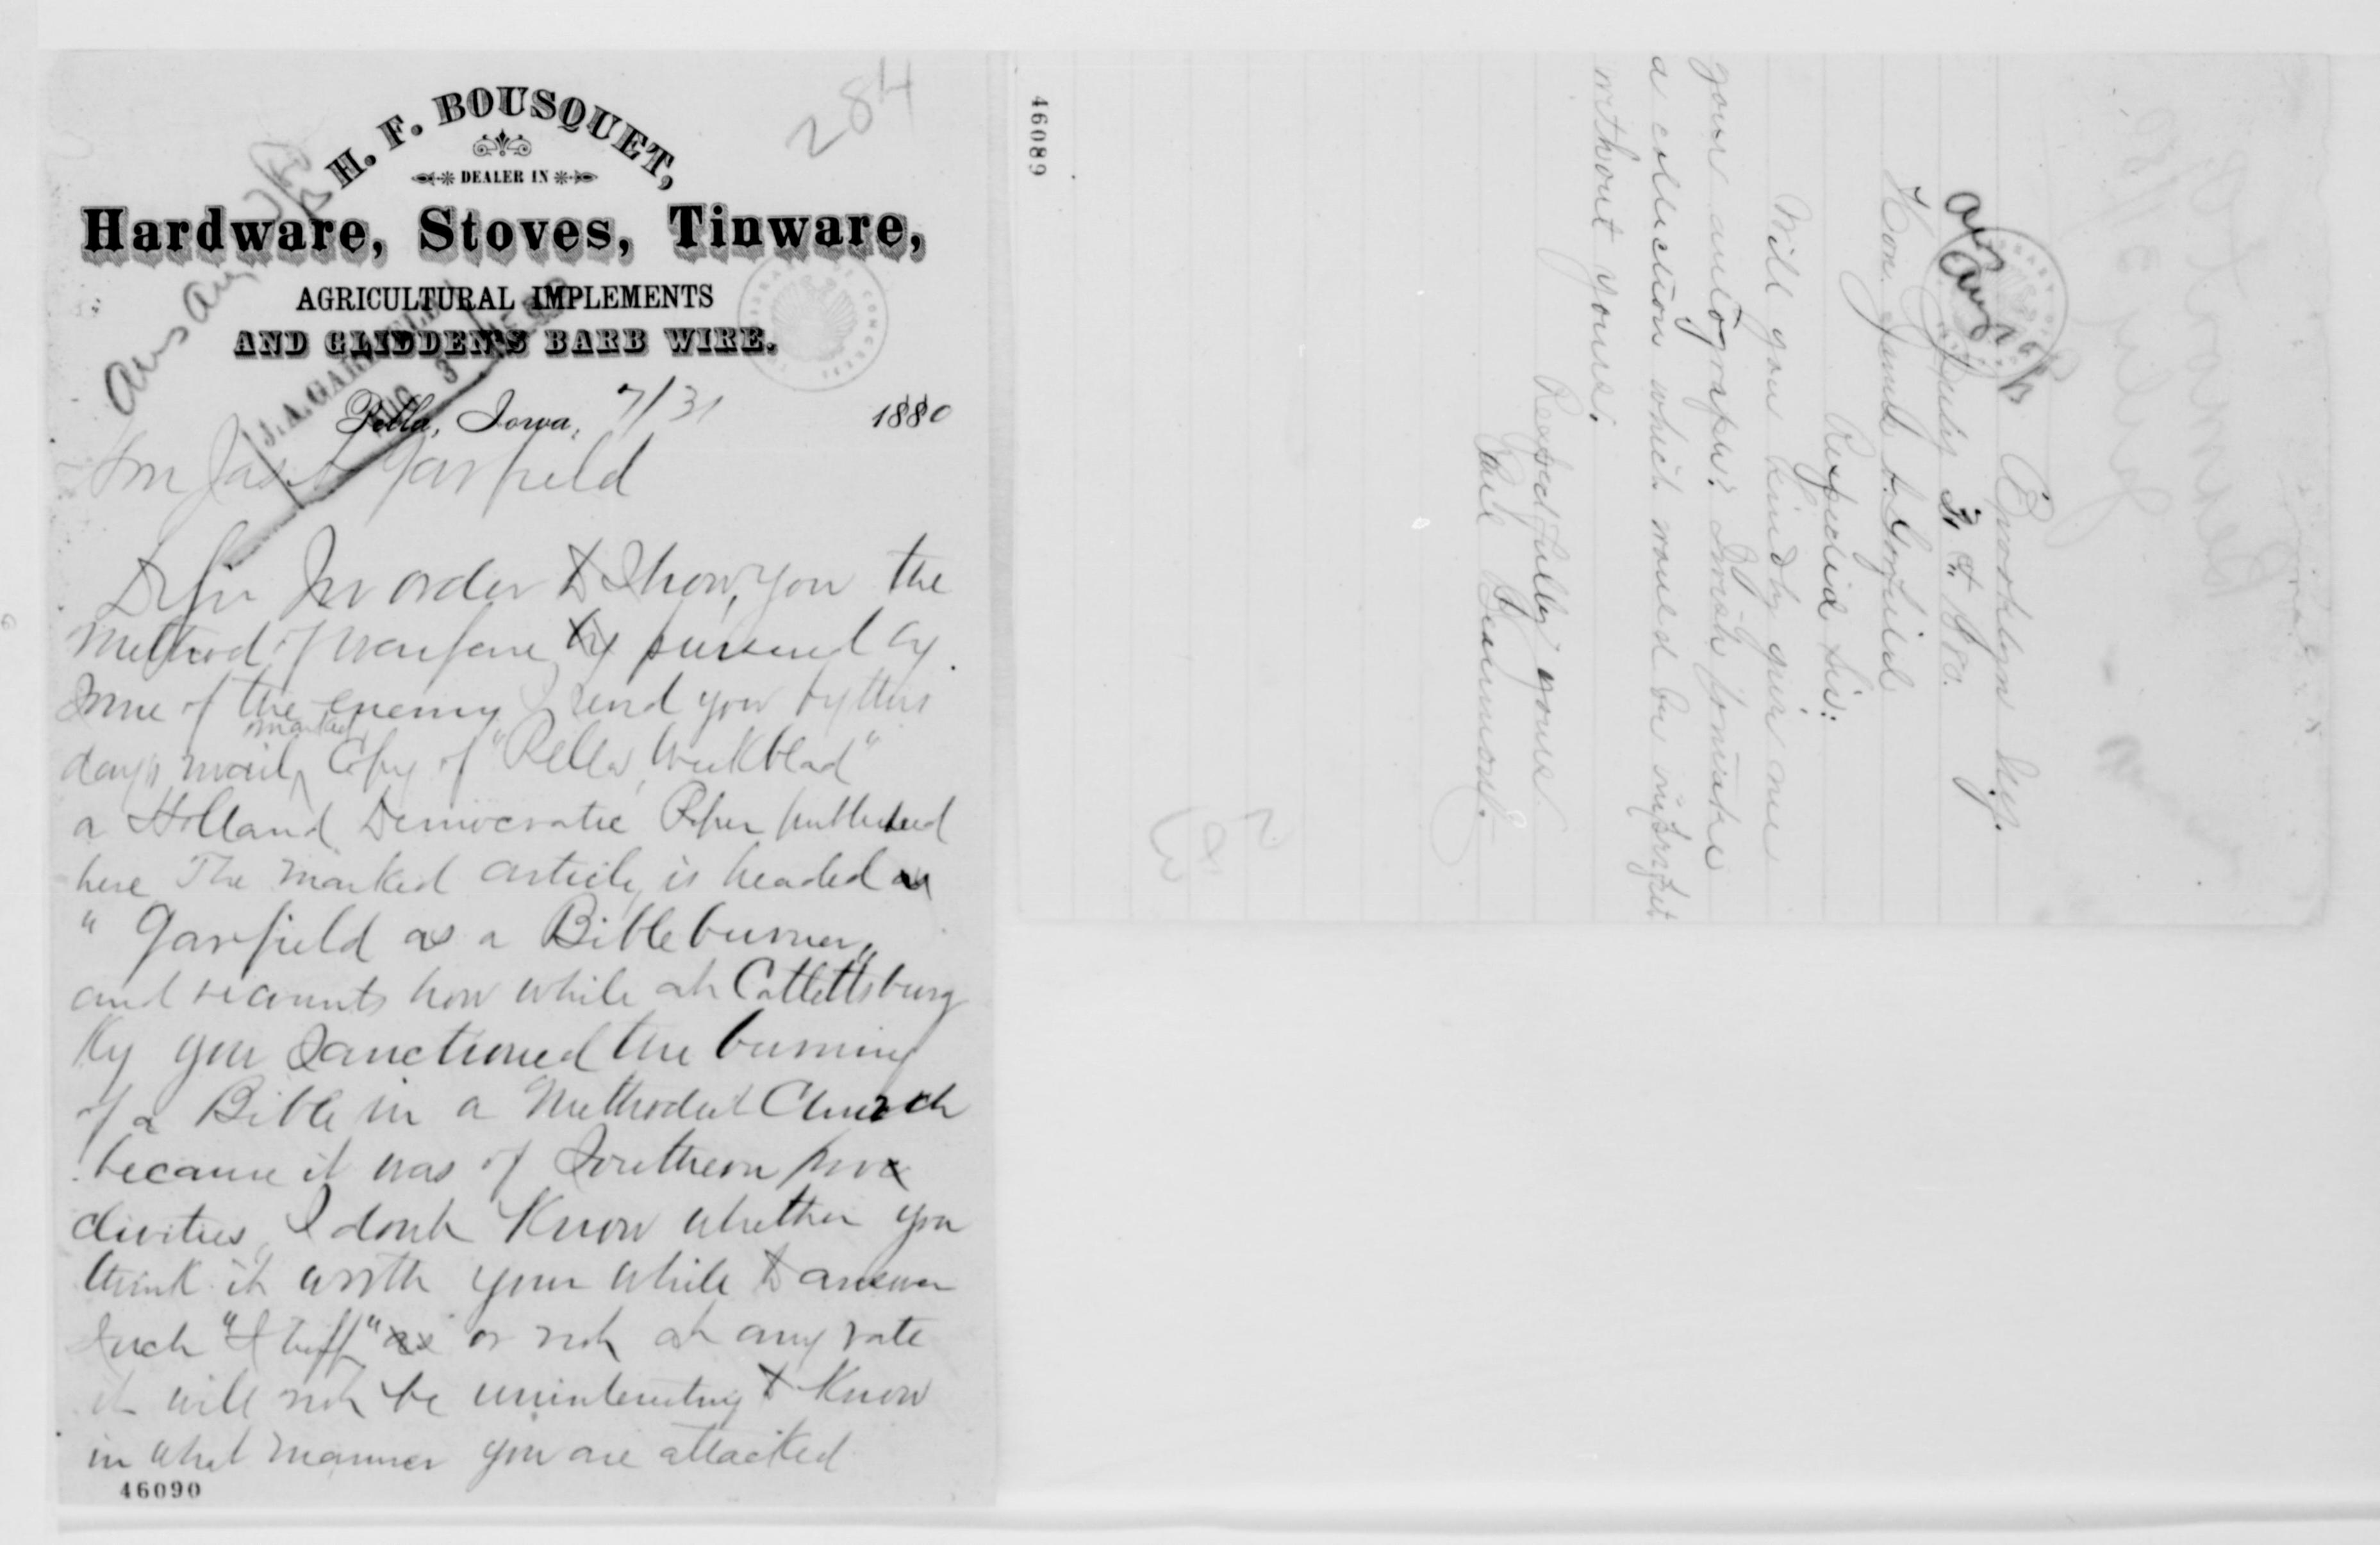 284
H. F. BOUSQUET,
DEALER IN
Hardware, Stoves, Tinware,
AGRICULTURAL IMPLEMENTS
AND GLIDDEN'S BARB WIRE.
Ans Aug
J. A. GARFIELD
Pella, Iowa, 7/31 1880
Garfield
D Sir In order to Show you the
method of warfare by pursued by
some of the enemy I send you by this
days mail marked Copy of "Pella Weekblad"
a Holland Democratic Paper published
here The marked article is headed
"Garfield as a Bible burner"
and recounts how while at Catlettsburg
Ky you Sanctioned the burning
of a Bible in a Methodist Church
because it was of Southern pro
clivities, I dont Know whether you
think it worth your while to answer
such "Stuff" as or not at any rate
it will not be uninteresting to Know
in what manner you are attacked
46090
46089
Brooklyn
July 31st 80.
Hon. James A. Garfield
Respected Sir:
Will you kindly give me
your autograph? I wish to
a collection which would be imperfect
without yours.
Respectfully yours
283